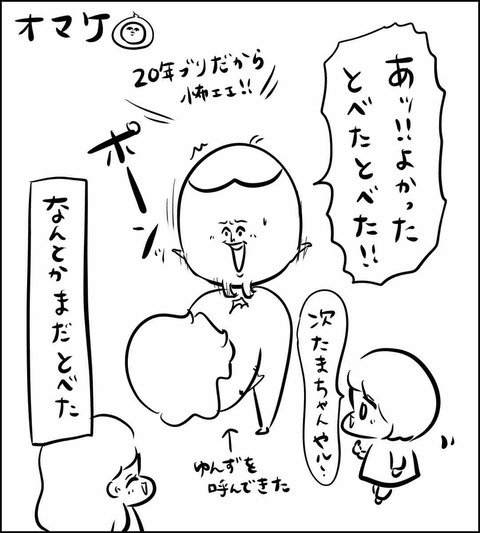 オマケ
20年ブリだから
怖ェェ!!
あッ!!よかった
とべたとべた!!
ポーンッ
なんとかまだとべた
次たまちゃんやル!
ゆんずを
呼んできた